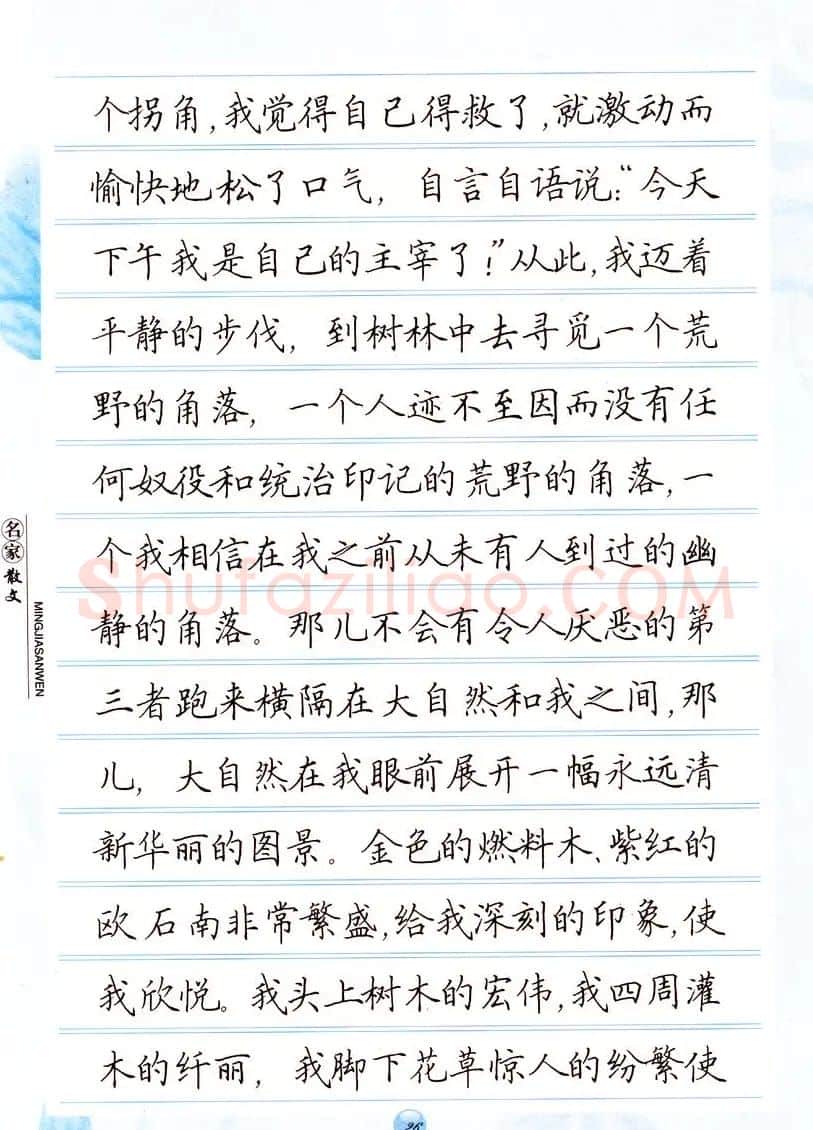 个拐角,我觉得自己得救了,就激动而
愉快地松了口气，自言自语说:“今天
下午我是自己的主宰了!”从此,我迈着
平静的步伐，到树林中去寻觅一个荒
野的角落，一个人迹不至因而没有任
何奴役和统治印记的荒野的角落,一
个我相信在我之前从未有人到过的幽
静的角落。那儿不会有令人厌恶的第
三者跑来横隔在大自然和我之间,那
儿，大自然在我眼前展开一幅永远清
新华丽的图景。金色的燃料木、紫红的
欧石南非常繁盛,给我深刻的印象,使
我欣悦。我头上树木的宏伟,我四周灌
木的纤丽，我脚下花草惊人的纷繁使
名家散文
MINGJIASANWEN
Shufaziliao.COM
26